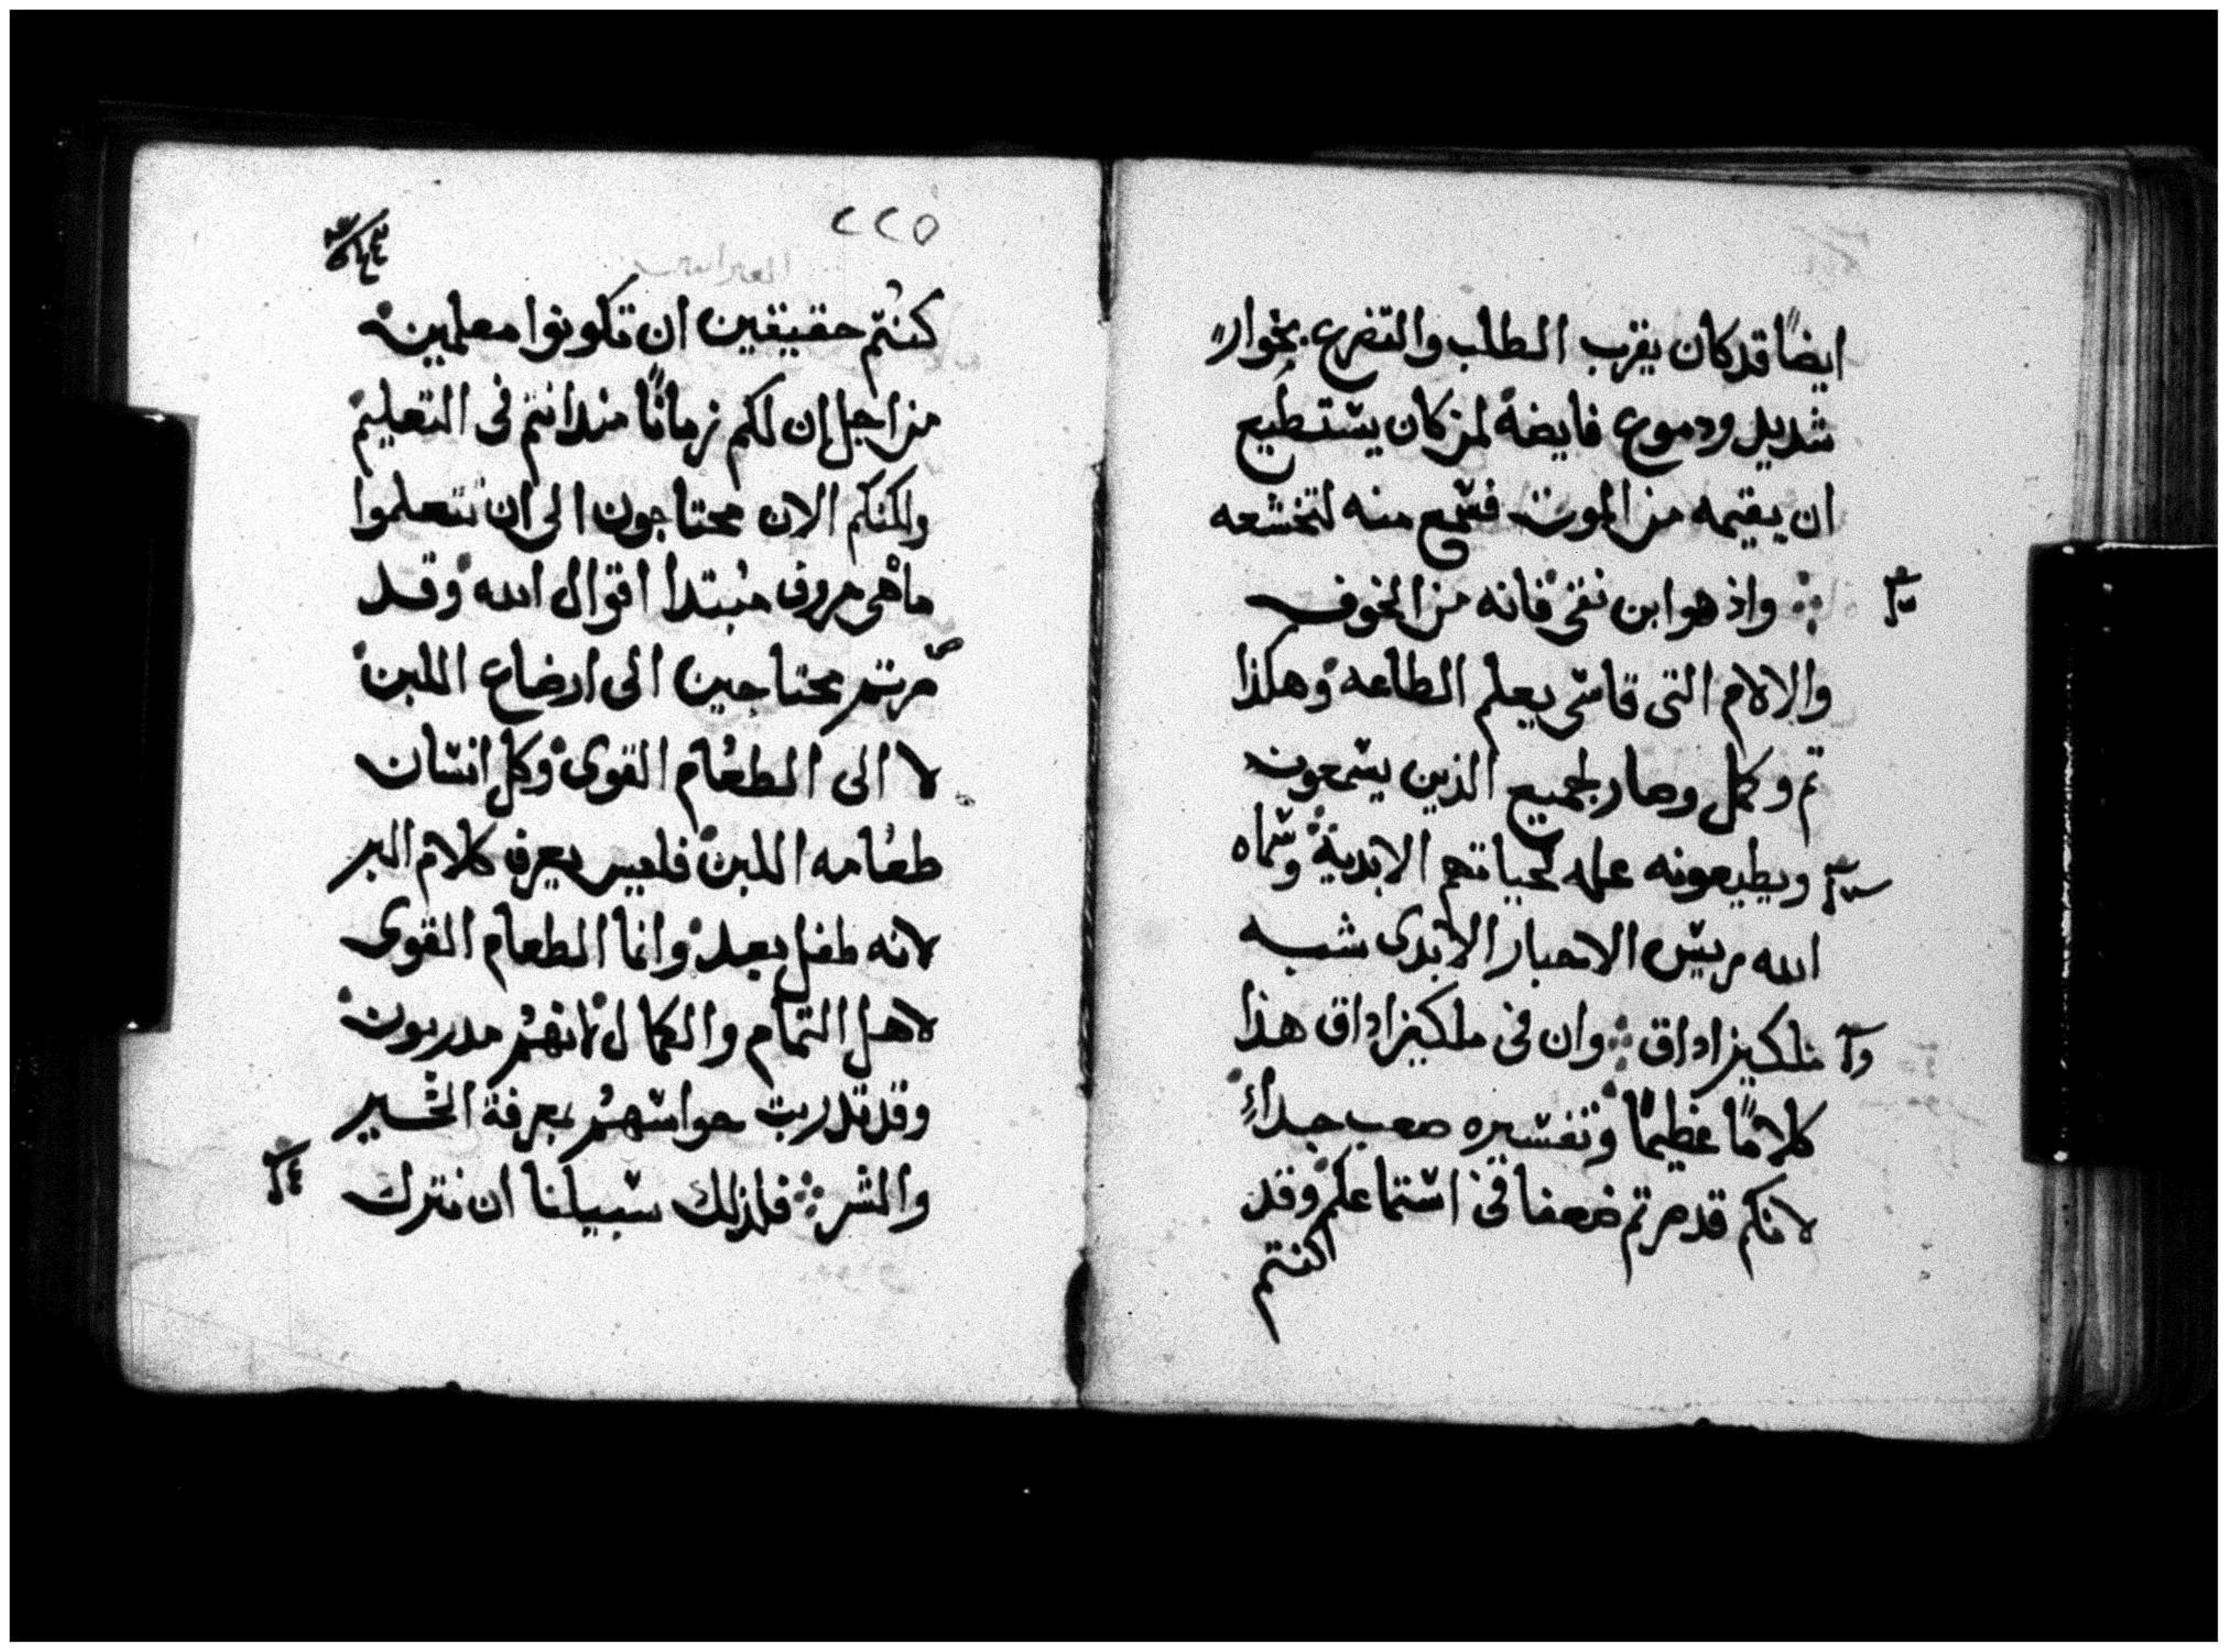 ايضًا قد كان يقرب الطلب والتضرع بخوار
شديد ودموع فايضة لمن كان يستطيع
ان يقيمه من الموت فسمع منه لتخشعه
واذ هو ابن نفى فانه من الخوف
والالام التى قاسى يعلم الطاعه وهكذا
تم وكمل وصار لجميع الذين يسمعون
ويطيعونه عله لحياتهم الابدية وسماه
الله ريس الاحبار الابدى شبه
ملكيزاداق وان فى ملكيزاداق هذا
كلامًا عظيمًا وتفسيره صعب جداً
لانكم قد صرتم ضعفا فى استماعكم وقد
كنتم
٢٢٥
كنتم حقيقين ان تكونوا معلمين
من اجل ان لكم زمانًا منذ انتم فى التعليم
ولكنكم الان محتاجون الى ان تتعلموا
ما هى حروف مبتدا اقوال الله وقد
صرتم محتاجين الى ارضاع اللبن
لا الى الطعام القوى وكل انسان
طعامه اللبن فليس يعرف كلام البر
لانه طفل بعد وانما الطعام القوى
لاهل التمام والكمال لانهم مدربون
وقد تدربت حواسهم بمعرفة الخير
والشر فلذلك سبيلنا ان نترك